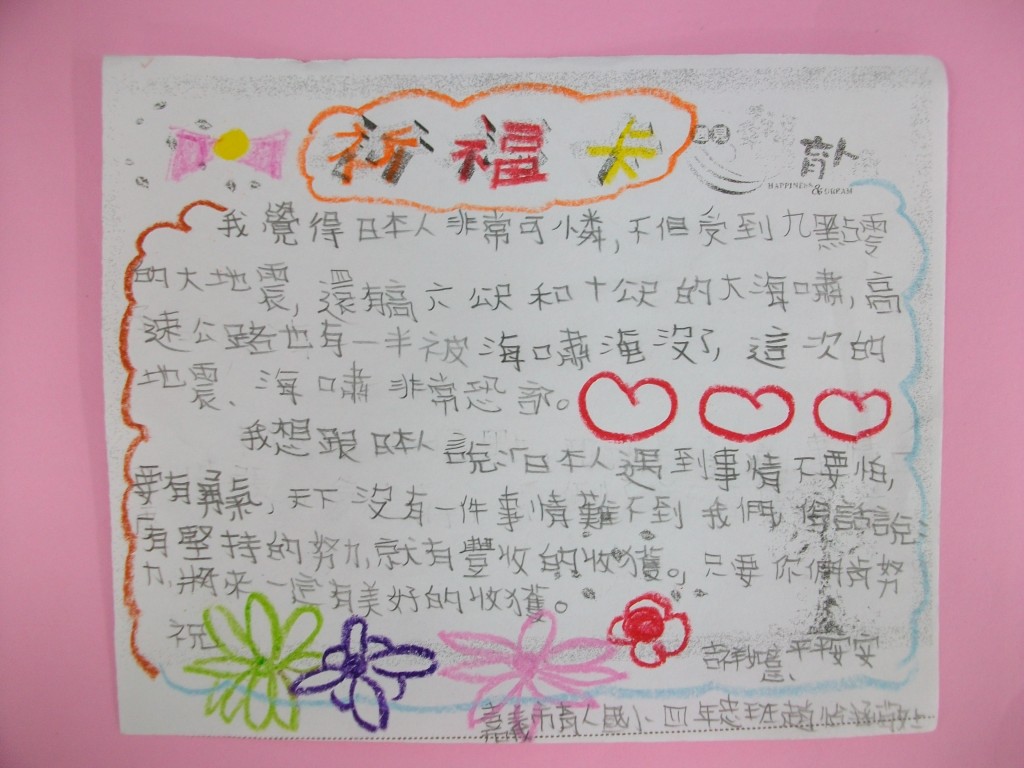 祈福卡
遇見
育人
HAPPINESS & DREAM
我覺得日本人非常可憐,不但受到九點零
的大地震,還有高六公尺和十公尺的大海嘯,高
速公路也有一半被海嘯淹没了,這次的
地震、海嘯非常恐
我想跟日本人說:「日本人遇到事情不要怕,
要有勇氣,天下沒有一件事情難不到我們,俗話說:
「有堅持的努力,就有豐收的收獲。」只要你們肯努
力,將來一定有美好的收獲。
祝
吉祥如意、平平安安
嘉義市育人國小四年忠班